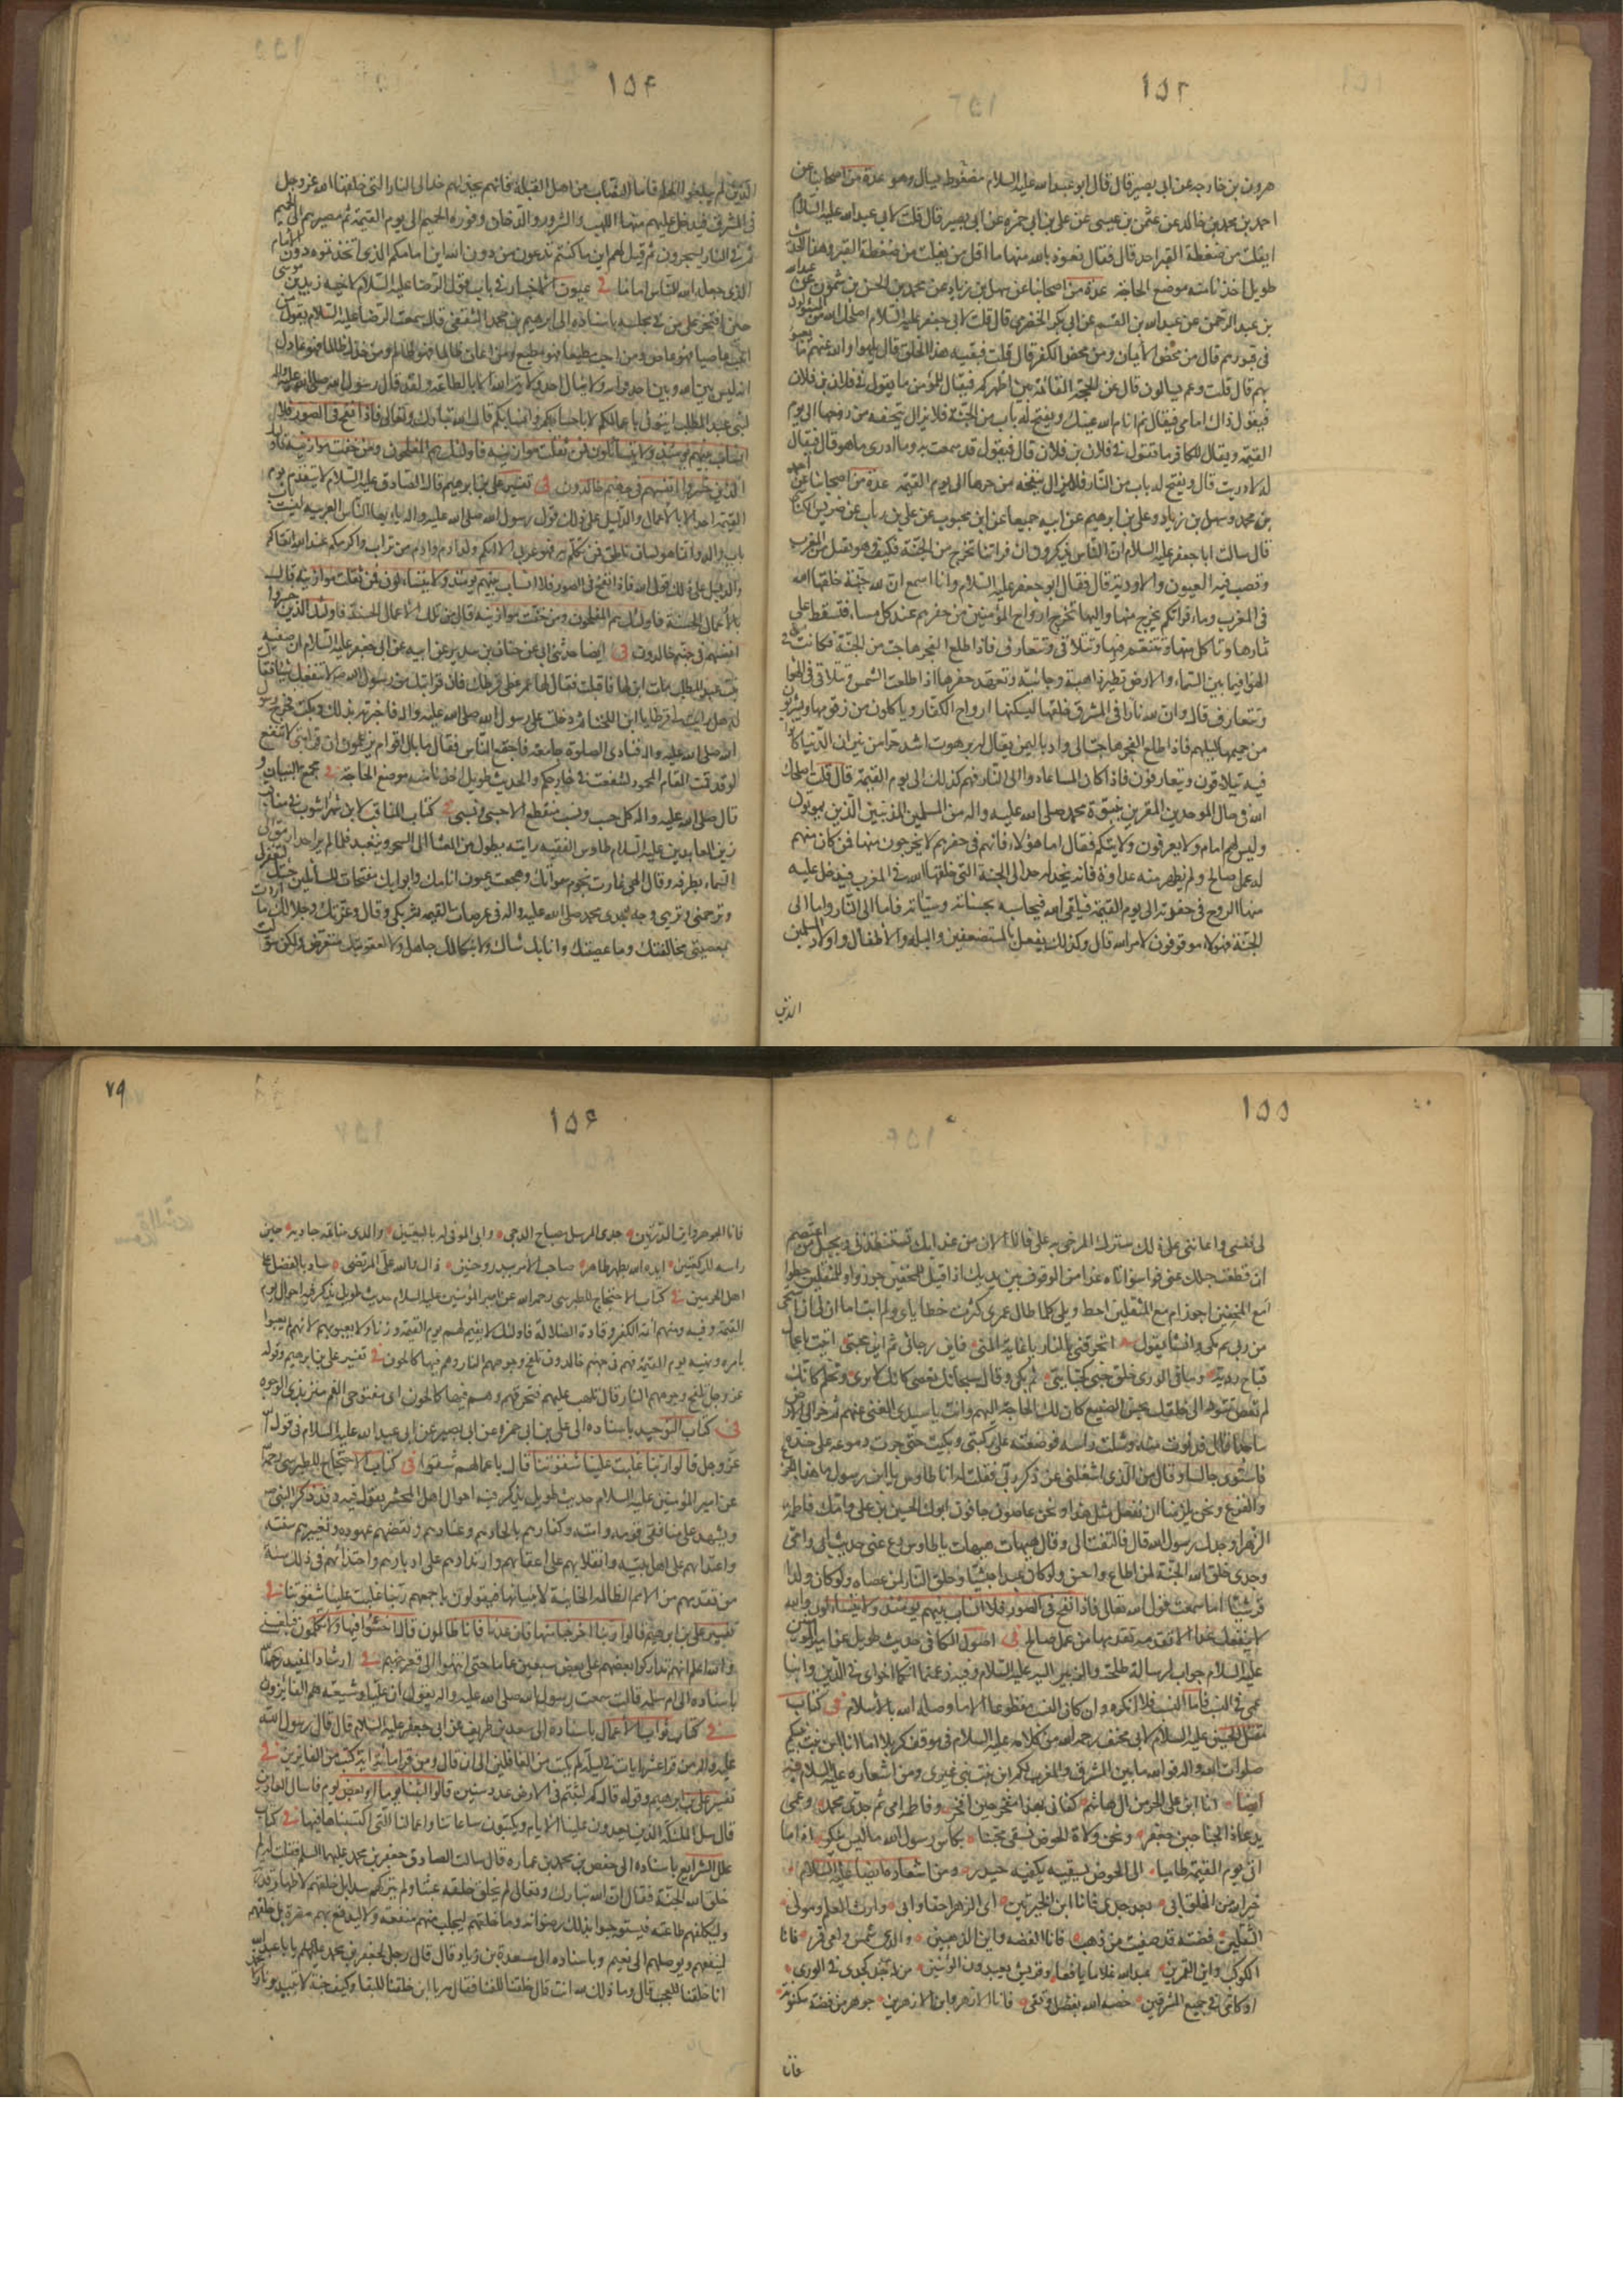 ١٥٣
هرون بن خارجه عن ابى بصير قال قال ابو عبد الله عليه السلام عدة من اصحابنا عن
احمد بن محمد بن خالد عن عثمن بن عيسى عن على بن ابى حمزه عن ابى بصير قال قلت لابى عبد الله عليه السلام
ايفلت من ضغطة القبر احد قال فقال نعوذ بالله منها ما اقل من يفلت من ضغطة القبر
طويل اخذنا منه موضع الحاجة عدة من اصحابنا عن سهل بن زياد عن محمد بن الحسن بن شمون عن عبد الله
بن عبد الرحمن عن عبد الله بن القسم عن ابى بكر الحضرمى قال قلت لابى جعفر عليه السلام اصلحك الله من المسئولون
فى قبورهم قال من محض الايمان ومن محض الكفر قال قلت فبقية هذا الخلق قال يلهوا والله عنهم ما يعبو
بهم قال قلت وعم يسالون قال عن الحجة القائمة بين اظهركم فيقال للمؤمن ما تقول فى فلان بن فلان
فيقول ذاك امامى فيقال نم انام الله عينك ويفتح له باب من الجنة فلا يزال يتحفه من روحها الى يوم
القيمة ويقال للكافر ما تقول فى فلان بن فلان قال فيقول قد سمعت به وما ادرى ما هو قال فيقال
له لا دريت قال ويفتح له باب من النار فلا يزال يتحفه من حرها الى يوم القيمة عدة من اصحابنا عن احمد
بن محمد وسهل بن زياد وعلى بن ابرهيم عن ابيه جميعا عن ابن محبوب عن على بن رئاب عن ضريس الكناسى
قال سالت ابا جعفر عليه السلام ان الناس يذكرون ان فراتنا تخرج من الجنة فكيف وهو يقبل من المغرب
وتصب فيه العيون والاودية قال فقال ابو جعفر عليه السلام وانا اسمع ان لله جنة خلقها الله
فى المغرب وماء فراتكم يخرج منها واليها تخرج ارواح المؤمنين من حفرهم عند كل مساء فتسقط على
ثمارها وتاكل منها وتتنعم فيها وتتلاقى وتتعارف فاذا طلع الفجر هاجت من الجنة فكانت فى
الهواء فيما بين السماء والارض تطير ذاهبة وجائية وتعهد حفرها اذا طلعت الشمس وتتلاقى فى الهواء
وتتعارف قال وان لله نارا فى المشرق خلقها ليسكنها ارواح الكفار وياكلون من زقومها ويشربون
من حميمها ليلهم فاذا طلع الفجر هاجت الى واد باليمن يقال له برهوت اشد حرا من نيران الدنيا كانوا
فيه يتلاقون ويتعارفون فاذا كان المساء عادوا الى النار فهم كذلك الى يوم القيمة قال قلت اصلحك
الله فى حال الموحدين المقرين بنبوة محمد صلى الله عليه واله من المسلمين المذنبين الذين يموتون
وليس لهم امام ولا يعرفون ولايتكم فقال اما هؤلاء فانهم فى حفرهم لا يخرجون منها فمن كان منهم
له عمل صالح ولم يظهر منه عداوة فانه يخد له خد الى الجنة التى خلقها الله فى المغرب فيدخل عليه
منها الروح فى حفرته الى يوم القيمة فيلقى الله فيحاسبه بحسناته وسيئاته فاما الى النار واما الى
الجنة فهؤلاء موقوفون لامر الله قال وكذلك يفعل بالمستضعفين والبله والاطفال واولاد المسلمين
الذين
١٥٤
الذين لم يبلغوا الحلم فاما النصاب من اهل القبلة فانهم يخد لهم خدا الى النار التى خلقها الله عز وجل
فى المشرق فيدخل عليهم منها اللهب والشرر والدخان وفورة الحميم الى يوم القيمة ثم مصيرهم الى الحميم
ثم فى النار يسجرون ثم قيل لهم اين ما كنتم تدعون من دون الله اين امامكم الذى اتخذتموه دون الامام
الذى جعله الله للناس اماما فى عيون الاخبار فى باب قول الرضا عليه السلام لاخيه زيد بن موسى
حين افتخر على من فى مجلسه باسناده الى ابرهيم بن محمد الثقفى قال سمعت الرضا عليه السلام يقول من
احب عاصيا فهو عاص ومن احب مطيعا فهو مطيع ومن اعان ظالما فهو ظالم ومن خذل ظالما فهو عادل
انه ليس بين الله وبين احد قرابة ولا ينال احد ولاية الله الا بالطاعة ولقد قال رسول الله صلى الله عليه واله
لبنى عبد المطلب ايتونى باعمالكم لا باحسابكم وانسابكم قال الله تبارك وتعالى فاذا نفخ فى الصور فلا
انساب بينهم يومئذ ولا يتسائلون فمن ثقلت موازينه فاولئك هم المفلحون ومن خفت موازينه فاولئك
الذين خسروا انفسهم فى جهنم خالدون فى تفسير على بن ابرهيم قال الصادق عليه السلام لا يتقدم يوم
القيمة احد الا بالاعمال والدليل على ذلك قول رسول الله صلى الله عليه واله يا ايها الناس العربيه ليست باب
باب والد وانما هو لسان ناطق فمن تكلم به فهو عربى الا انكم ولد ادم وادم من تراب واكرمكم عند الله اتقاكم
والدليل على ذلك قول الله فاذا نفخ فى الصور فلا انساب بينهم يومئذ ولا يتسائلون فمن ثقلت موازينه قال
بالاعمال الحسنة فاولئك هم المفلحون ومن خفت موازينه قال من تلك الاعمال الحسنة فاولئك الذين خسروا
انفسهم فى جهنم خالدون فى ايضا حدثنى ابى عن حنان بن سدير عن ابيه عن ابى جعفر عليه السلام ان صفيه
بنت عبد المطلب مات ابن لها فاقبلت فقال لها عمر غطى قرطك فان قرابتك من رسول الله لا تنفعك شيئا فقالت
له هل رايت لى قرطا يا ابن اللخناء ثم دخلت على رسول الله صلى الله عليه واله فاخبرته بذلك وبكت فخرج رسول
الله صلى الله عليه واله فنادى الصلوة جامعة فاجتمع الناس فقال ما بال اقوام يزعمون ان قرابتى لا تنفع
لو قد قمت المقام المحمود لشفعت فى خارجكم والحديث طويل اخذنا منه موضع الحاجة فى مجمع البيان و
قال صلى الله عليه واله كل حسب ونسب منقطع الا حسبى ونسبى فى كتاب المناقب لابن شهراشوب فى مناقب
زين العابدين عليه السلام طاوس الفقيه رايته يطوف من العشاء الى السحر ويتعبد فلما لم ير احدا رمق الى
السماء بطرفه وقال الهى غارت نجوم سمواتك وهجعت عيون انامك وابوابك مفتحات للسائلين جئتك لتغفرلى
وترحمنى وترينى وجه جدى محمد صلى الله عليه واله فى عرصات القيمه ثم بكى وقال وعزتك وجلالك ما اردت
بمعصيتى مخالفتك وما عصيتك وانا بك شاك ولا بنكالك جاهل ولا لعقوبتك متعرض ولكن سولت
١٥٥
لى نفسى واعاننى على ذلك سترك المرخى به على فانا الان من عذابك من يستنقذنى وبحبل من اعتصم
ان قطعت حبلك عنى فوا سواتاه غدا من الوقوف بين يديك اذا قيل للمخفين جوزوا وللمثقلين حطوا
امع المخفين اجوز ام مع المثقلين احط ويلى كلما طال عمرى كثرت خطاياى ولم اتب اما ان لى ان استحى
من ربى ثم بكى وانشا يقول اتحرقنى بالنار يا غاية المنى فاين رجائى ثم اين محبتى اتيت باعمال
قباح ردية وما فى الورى خلق جنى كجنايتى ثم بكى وقال سبحانك تعصى كانك لا ترى وتحلم كانك
لم تعص تتودد الى خلقك بحسن الصنيع كان بك الحاجة اليهم وانت يا سيدى الغنى عنهم ثم خر الى الارض
ساجدا قال فدنوت منه وشلت راسه فوضعته على ركبتى وبكيت حتى جرت دموعه على خده
فاستوى جالسا وقال من الذى اشغلنى عن ذكر ربى فقلت له انا طاوس يا ابن رسول ما هذا الجزع
والفزع ونحن يلزمنا ان نفعل مثل هذا ونحن عاصون جانون ابوك الحسين بن على وامك فاطمة
الزهراء وجدك رسول الله قال فالتفت الى وقال هيهات هيهات يا طاوس دع عنى حديث ابى وامى
وجدى خلق الله الجنة لمن اطاع واحسن ولو كان عبدا حبشيا وخلق النار لمن عصاه ولو كان ولدا
قرشيا اما سمعت قول الله تعالى فاذا نفخ فى الصور فلا انساب بينهم يومئذ ولا يتسائلون والله
لا ينفعك غدا الا تقدمة تقدمها من عمل صالح فى اصول الكافى حديث طويل عن امير المؤمنين
عليه السلام جواب لرسالة طلحة والزبير اليه عليه السلام وفيه زعمتما انكما اخواى فى الدين وابنا
عمى فى النسب فاما النسب فلا انكره وان كان النسب مقطوعا الا ما وصله الله بالاسلام فى كتاب
مقتل الحسين عليه السلام لابى مخنف رحمه الله من كلامه عليه السلام فى موقف كربلا اما انا ابن بنت نبيكم
صلوات الله واله فوالله ما بين المشرق والمغرب لكم ابن بنت نبى غيرى ومن اشعاره عليه السلام فيه
ايضا انا ابن على الحر من ال هاشم كفانى بهذا مفخر حين افخر وفاطم امى ثم جدى محمد وعمى
يدعاذا الجناحين جعفر ونحن ولاة الحوض نسقى محبنا بكاس رسول الله ما ليس ينكر اذا ما
اتى يوم القيمة ظاميا الى الحوض يسقيه بكفيه حيدر ومن اشعاره ايضا عليه السلام
خيرة الله من الخلق ابى بعد جدى فانا ابن الخيرتين امى الزهراء حقا وابى وارث العلم ومولى
الثقلين فضة قد صفيت من ذهب فانا الفضه وابن الذهبين والدى شمس وامى قمر فانا
الكوكب وابن القمرين عبد الله غلاما يافعا وقريش يعبدون الوثنين من له جد كجدى فى الورى
او كامى فى جميع المشرقين خصه الله بفضل وتقى فانا الازهر وابن الازهرين جوهر من فضة مكنونة
فانا
١٥٦
٧٩
فانا الجوهر وابن الدرتين جدى المرسل مصباح الدجى وابى الموفى له بالبيعتين والذى خاتمه جاد به حين
راسه للركعتين ايده الله بطهر طاهر صاحب الامر ببدر وحنين ذاك والله على المرتضى ساد بالفضل على
اهل الحرمين فى كتاب الاحتجاج للطبرسى رحمه الله عن امير المؤمنين عليه السلام حديث طويل يذكر فيه احوال يوم
القيمة وفيه ومنهم ائمة الكفر وقادة الضلالة فاولئك لا يقيم لهم يوم القيمة وزنا ولا يعبؤ بهم لانهم لم يعبوا
بامره ونهيه يوم القيمة فهم فى جهنم خالدون تلفح وجوههم النار وهم فيها كالحون فى تفسير على بن ابرهيم وقوله
عز وجل تلفح وجوههم النار قال تلهب عليهم فتحرقهم وهم فيها كالحون اى مفتوحى الفم متربدى الوجوه
فى كتاب التوحيد باسناده الى على بن ابى حمزه عن ابى بصير عن ابى عبد الله عليه السلام فى قول الله
عز وجل قالوا ربنا غلبت علينا شقوتنا قال باعمالهم شقوا فى كتاب الاحتجاج للطبرسى
عن امير المؤمنين عليه السلام حديث طويل يذكر فيه احوال اهل المحشر يقول فيه وقد ذكر النبى
ويشهد على منافقى قومه وامته وكفارهم بالحادهم وعنادهم ونقضهم عهوده وتغييرهم سنته
واعتدائهم على اهل بيته وانقلابهم على اعقابهم وارتدادهم على ادبارهم واحتذائهم فى ذلك سنة
من تقدمهم من الامم الظالمه الخائنة لانبيائها فيقولون باجمعهم ربنا غلبت علينا شقوتنا فى
تفسير على بن ابرهيم قالوا ربنا اخرجنا منها فان عدنا فانا ظالمون قال اخسئوا فيها ولا تكلمون
والله اعلم انهم تداركوا بعضهم على بعض سبعين عاما حتى انتهوا الى قعر جهنم فى ارشاد المفيد رحمه الله
باسناده الى ام سلمه قالت سمعت رسول الله صلى الله عليه واله يقول ان عليا وشيعته هم الفائزون
فى كتاب ثواب الاعمال باسناده الى سعد بن طريف عن ابى جعفر عليه السلام قال قال رسول الله
عليه واله من قرا عشر ايات فى ليلة لم يكتب من الغافلين الى ان قال ومن قرا مائة اية كتب من الفايزين فى
تفسير على بن ابرهيم وقوله قال كم لبثتم فى الارض عدد سنين قالوا لبثنا يوما او بعض يوم فاسال العادين
قال سل الملئكة الذين يعدون علينا الايام ويكتبون ساعاتنا واعمالنا التى اكتسبناها فيها فى كتاب
علل الشرايع باسناده الى جعفر بن محمد بن عماره قال سالت الصادق جعفر بن محمد عليهما السلم فقلت له لم
خلق الله الخلق فقال ان الله تبارك وتعالى لم يخلق خلقه عبثا ولم يتركهم سدى بل خلقهم لاظهار قدرته
وليكلفهم طاعته فيستوجبوا بذلك رضوانه وما خلقهم ليجلب منهم منفعة ولا ليدفع بهم مضرة بل خلقهم
لينفعهم ويوصلهم الى نعيم وباسناده الى مسعدة بن زياد قال قال رجل لجعفر بن محمد يا ابا عبد الله
انا خلقنا للعجب قال وما ذلك لله انت قال خلقنا للفناء فقال مه يا ابن اخ خلقنا للبقاء وكيف جنة لا تبيد ونار لا